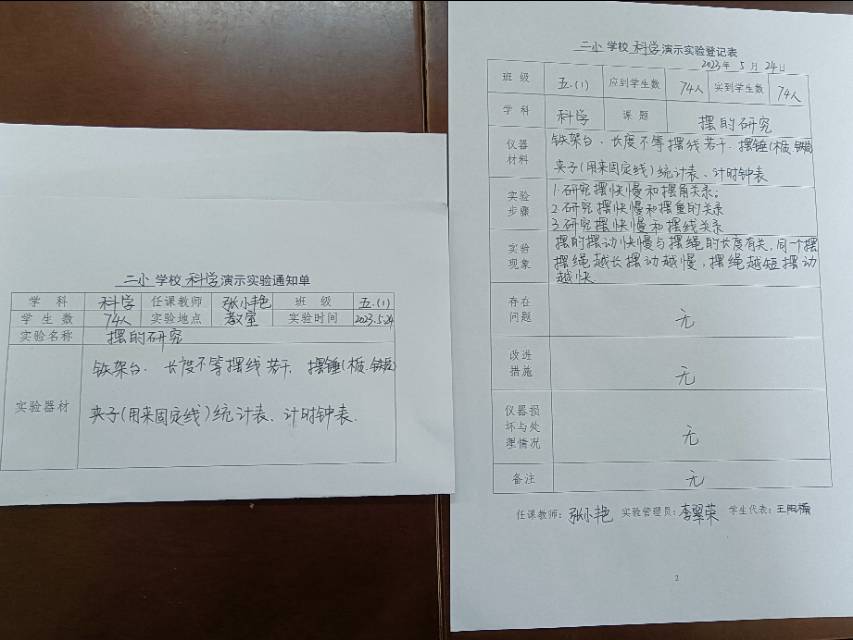 二小 学校 科学 演示实验通知单
学 科 科学 任课教师 张小艳 班 级 五.(1)
学 生 数 74人 实验地点 教室 实验时间 2023.5.24
实验名称 摆的研究
实验器材
铁架台、长度不等摆线若干、摆锤(木板、铁板)
夹子(用来固定线)统计表、计时钟表.
二小 学校 科学 演示实验登记表
2023年 5 月 24日
班 级 五.(1) 应到学生数 74人 实到学生数 74人
学 科 科学 课 题 摆的研究
仪器
材料
铁架台、长度不等摆线若干、摆锤(木板、铁板)
夹子(用来固定线)统计表、计时钟表
实验
步骤
1.研究摆快慢和摆角关系;
2.研究摆快慢和摆重的关系
3.研究摆快慢和摆线关系
实验
现象
摆的摆动快慢与摆绳的长度有关,同一个摆
摆绳越长摆动越慢,摆绳越短摆动
越快
存在
问题
无
改进
措施
无
仪器损
坏与处
理情况
无
备注 无
任课教师: 张小艳 实验管理员: 李翠荣 学生代表:
2